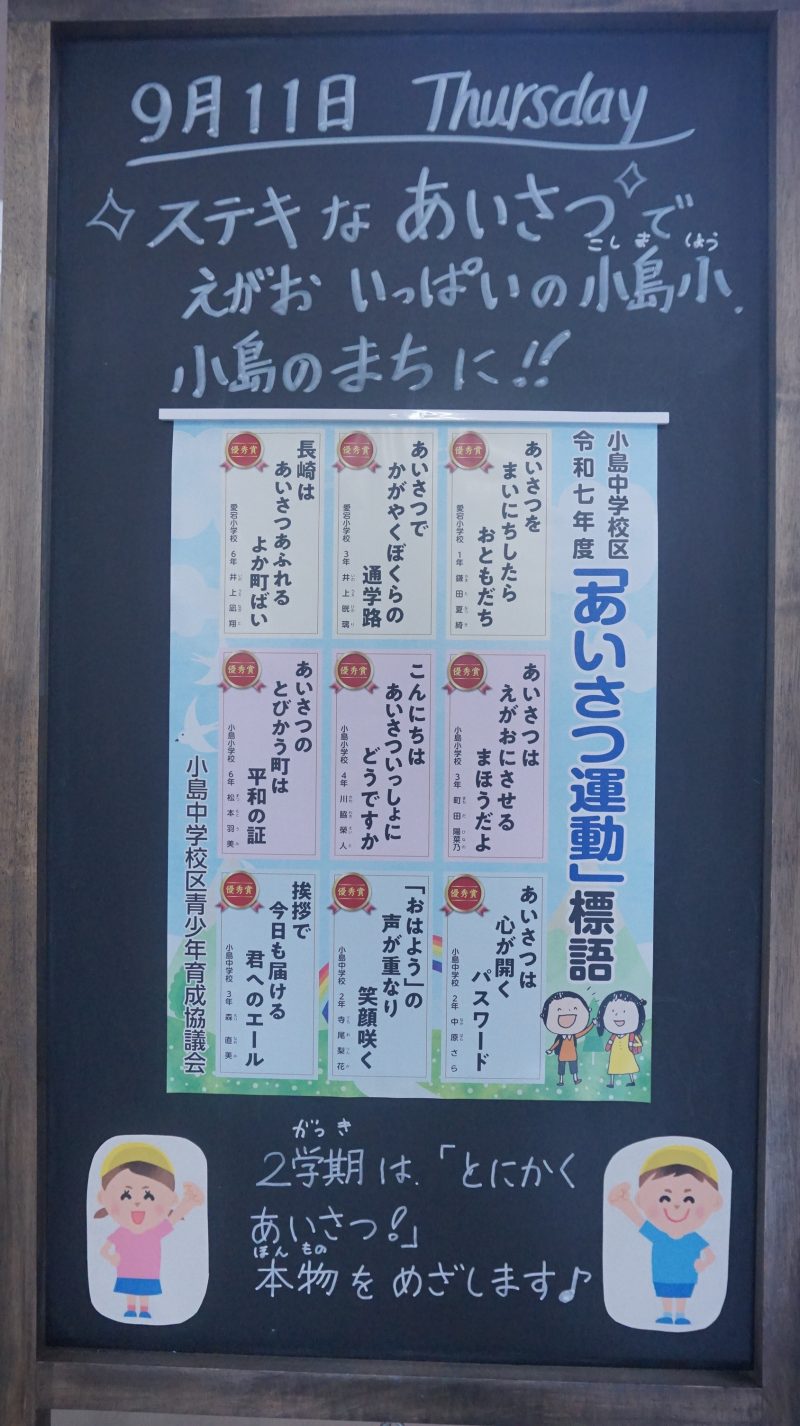 9月11日 Thursday
ステキな あいさつで
えがお いっぱいの小島小、
こしま しょう
小島のまちに!!
小島中学校区
令和七年度
「あいさつ運動」標語
優秀賞
あいさつを
まいにちしたら
おともだち
愛宕小学校 1年 鎌田 夏綺
優秀賞
あいさつで
かがやくぼくらの
通学路
愛宕小学校 3年 井上 晄璃
優秀賞
長崎は
あいさつあふれる
よか町ばい
愛宕小学校 6年 井上 凪翔
優秀賞
あいさつは
えがおにさせる
まほうだよ
小島小学校 3年 町田 陽菜乃
優秀賞
こんにちは
あいさついっしょに
どうですか
小島小学校 4年 川脇 榮人
優秀賞
あいさつの
とびかう町は
平和の証
小島小学校 6年 松本 羽美
優秀賞
あいさつは
心が開く
パスワード
小島中学校 2年 中原 さら
優秀賞
「おはよう」の
声が重なり
笑顔咲く
小島中学校 2年 寺尾 梨花
優秀賞
挨拶で
今日も届ける
君へのエール
小島中学校 3年 森 直美
小島中学校区青少年育成協議会
がっき
2学期は、「とにかく
あいさつ!」
ほんもの
本物を めざします♪